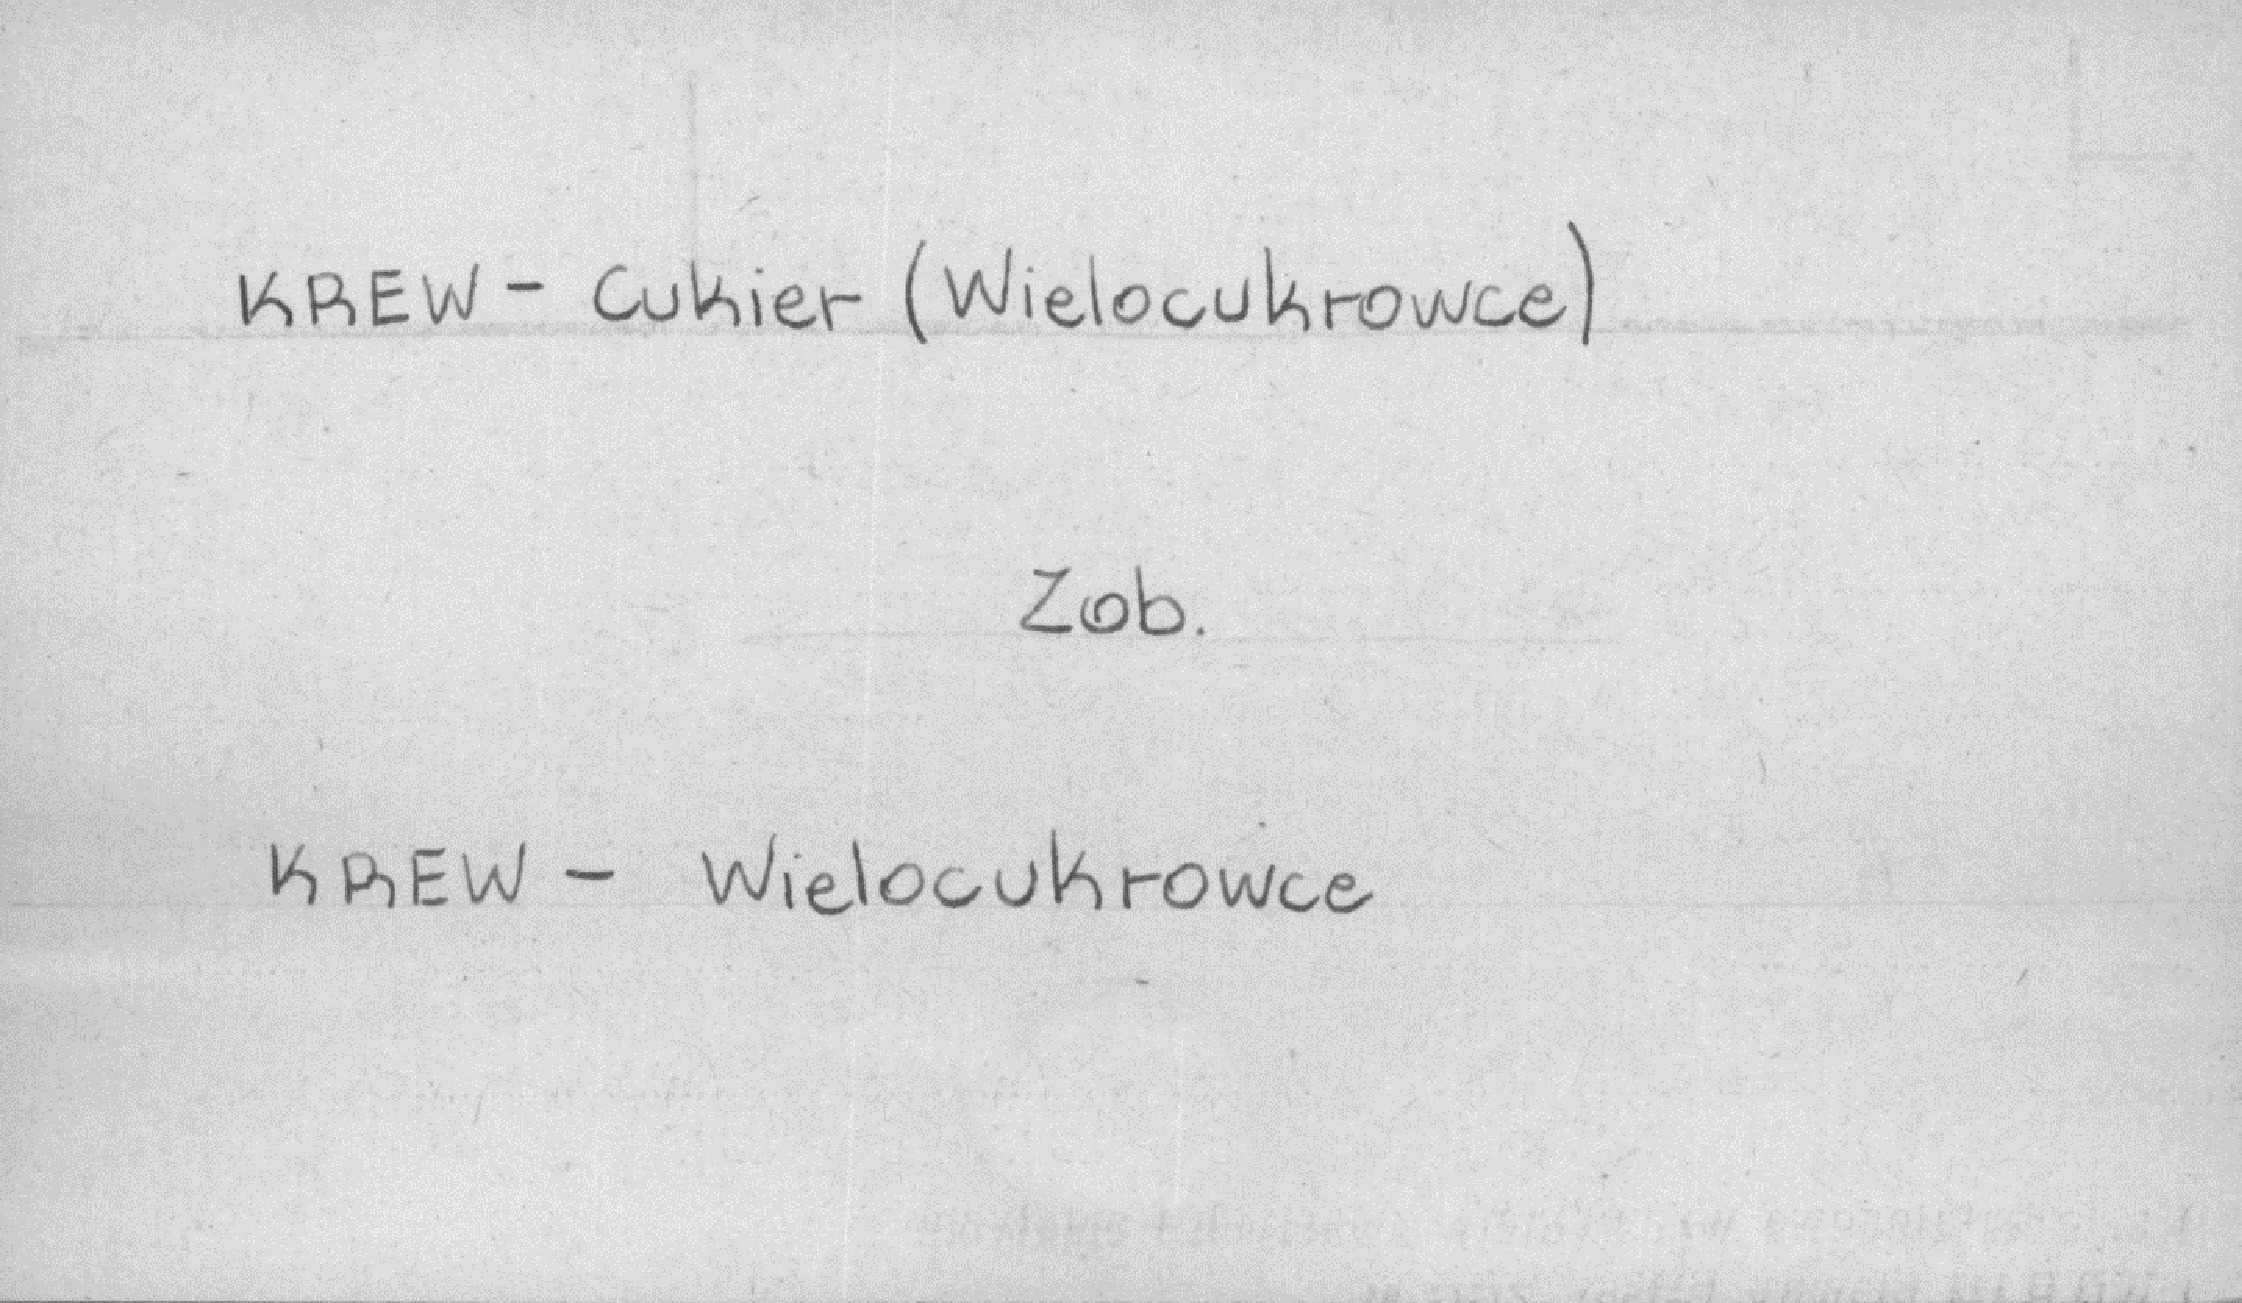 KREW - Cukier (Wielocukrowce)
Zob.
KREW - Wielocukrowce